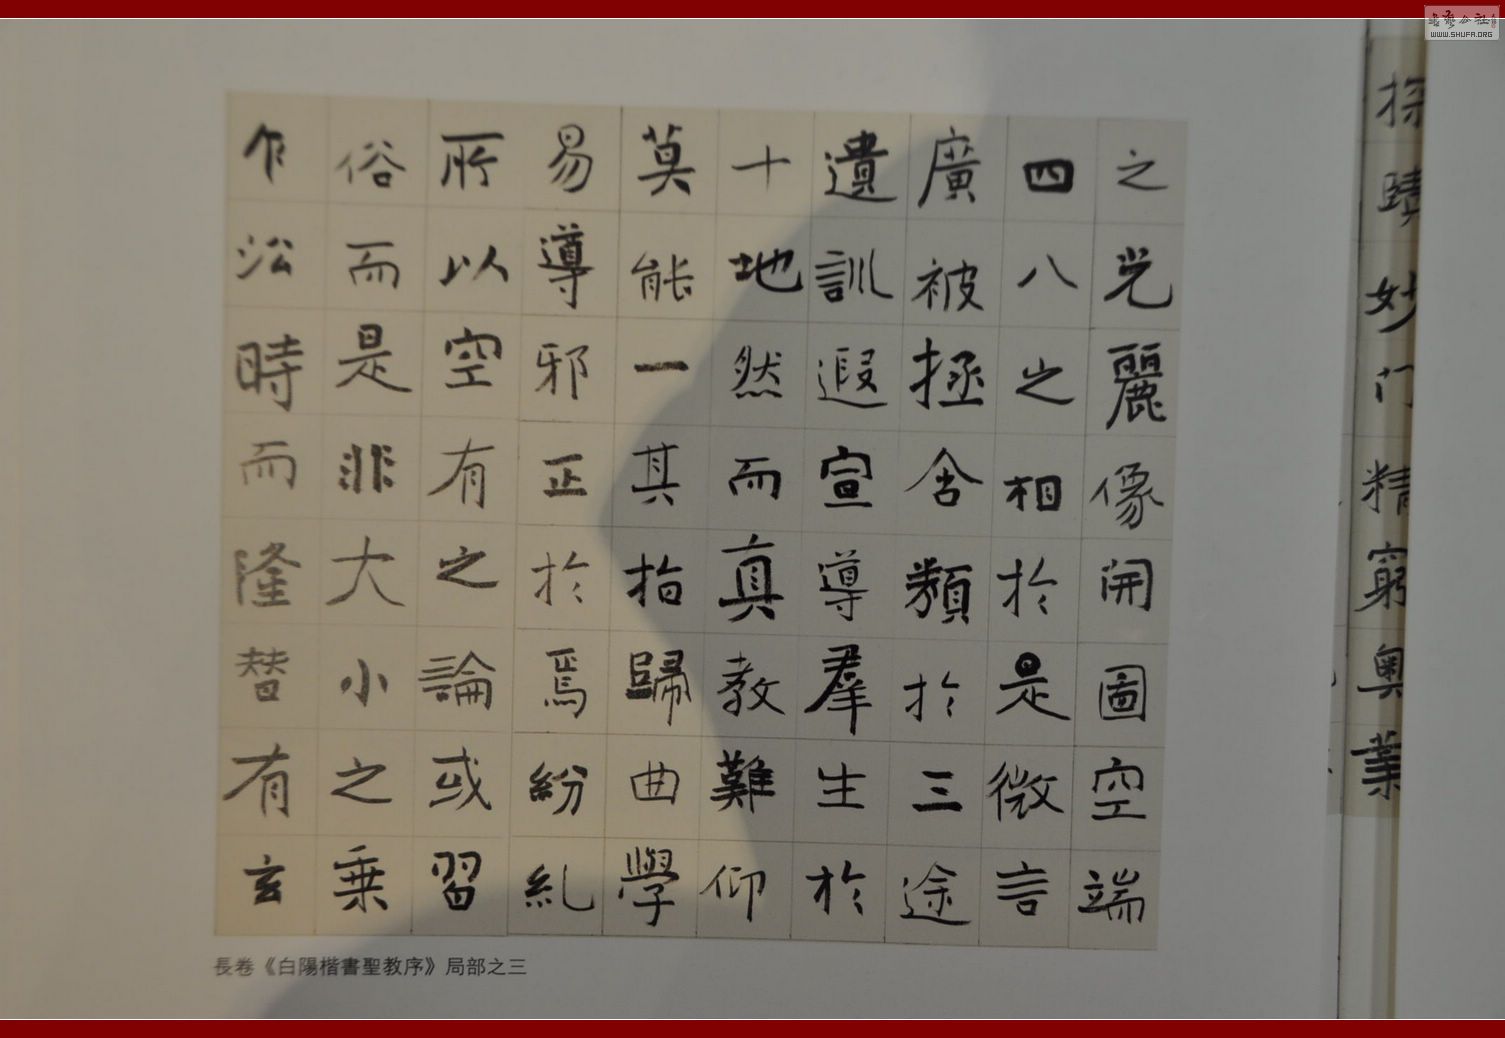 之光麗像開圖空端
四八之相於是微言
廣被拯含類於三途
遺訓遐宣導羣生於
十地然而真教難仰
莫能一其指歸曲學
易導邪正於焉紛糺
所以空有之論或習
俗而是非大小之乗
乍沿時而隆替有玄
探賾妙门精窮奧業
長卷《白陽楷書聖教序》局部之三
WWW.SHUFA.ORG